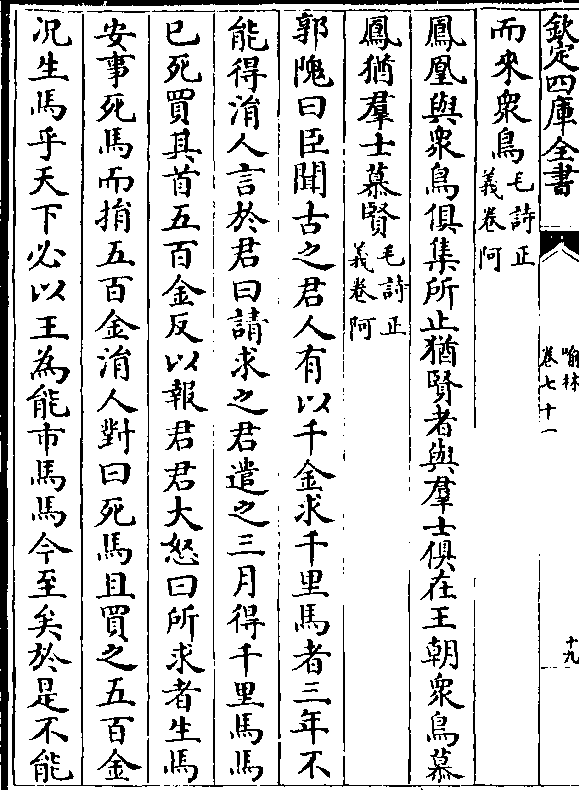 欽定四庫全書
喻林
卷七十一
十九
而來衆鳥毛詩正
義卷阿
鳳凰與衆鳥俱集所止猶賢者與羣士俱在王朝衆鳥慕
鳳猶羣士慕賢毛詩正
義卷阿
郭隗曰臣聞古之君人有以千金求千里馬者三年不
能得涓人言於君曰請求之君遣之三月得千里馬馬
已死買其首五百金反以報君君大怒曰所求者生馬
安事死馬而捐五百金涓人對曰死馬且買之五百金
況生馬乎天下必以王為能市馬馬今至矣於是不能